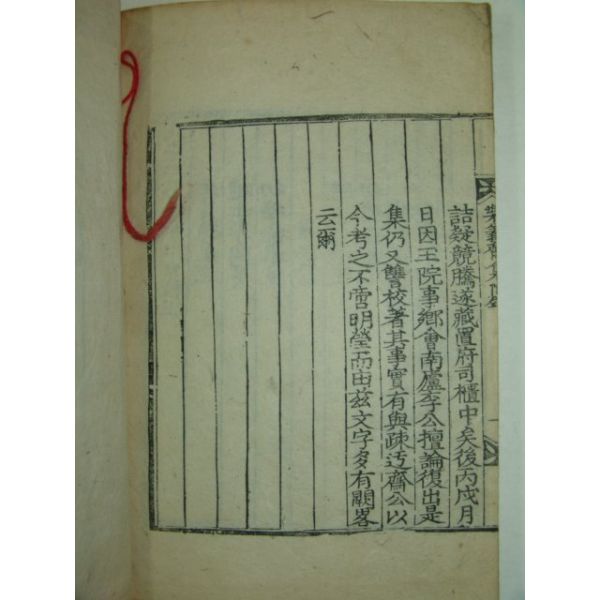 詰疑競騰遂藏置府司櫃中矣後丙戌月
日因王院事鄕會南廬李公擅論復出是
集仍又讐校著其事實有與疎迃齋公以
今考之不啻明瑩而由玆文字多有闕畧
云爾